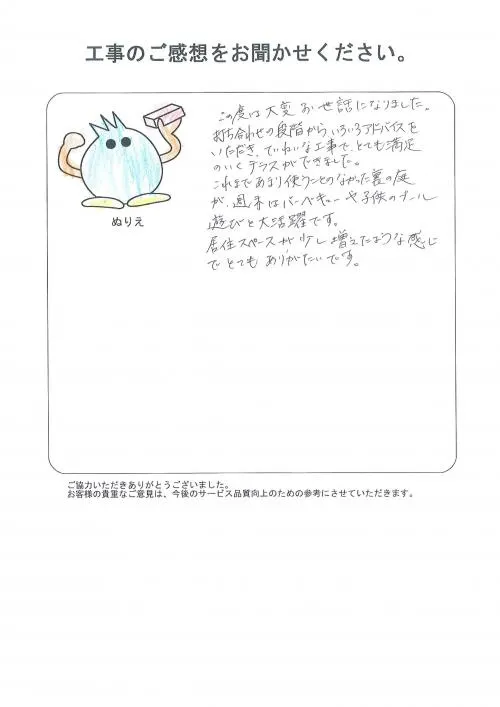 工事のご感想をお聞かせください。
この度は大変お世話になりました。
打ち合わせの段階からいろいろアドバイスを
いただき、ていねいな工事で、とても満足
のいくテラスができました。
これまであまり使うことのなかった裏の庭
が、週末はバーベキューや子供のプール
遊びと大活躍です。
居住スペースが少し増えたような感じ
でとてもありがたいです。
ぬりえ
ご協力いただきありがとうございました。
お客様の貴重なご意見は、今後のサービス品質向上のための参考にさせていただきます。